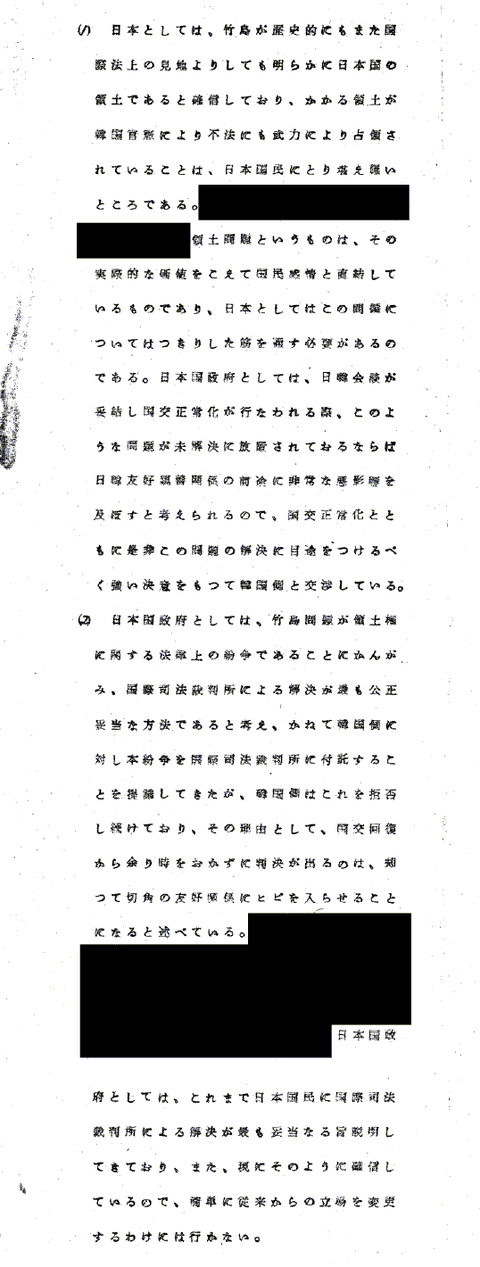 (1) 日本としては、竹島が歴史的にもまた国
際法上の見地よりしても明らかに日本国の
領土であると確信しており、かかる領土が
韓国官憲により不法にも武力により占領さ
れていることは、日本国民にとり堪え難い
ところである。
領土問題というものは、その
実際的な価値をこえて国民感情と直結して
いるものであり、日本としてはこの問題に
ついてはつきりした筋を通す必要があるの
である。日本国政府としては、日韓会談が
妥結し国交正常化が行なわれる際、このよ
うな問題が未解決に放置されておるならば
日韓友好親善関係の前途に非常な悪影響を
及ぼすと考えられるので、国交正常化とと
もに是非この問題の解決に目途をつけるべ
く強い決意をもつて韓国側と交渉している。
(2) 日本国政府としては、竹島問題が領土権
に関する法律上の紛争であることにかんが
み、国際司法裁判所による解決が最も公正
妥当な方法であると考え、かねて韓国側に
対し本紛争を国際司法裁判所に付託するこ
とを提議してきたが、韓国側はこれを拒否
し続けており、その理由として、国交回復
から余り時をおかずに判決が出るのは、却
つて切角の友好関係にヒビを入らせること
になると述べている。
日本国政
府としては、これまで日本国民に国際司法
裁判所による解決が最も妥当なる旨説明し
てきており、また、現にそのように確信し
ているので、簡単に従来からの立場を変更
するわけには行かない。